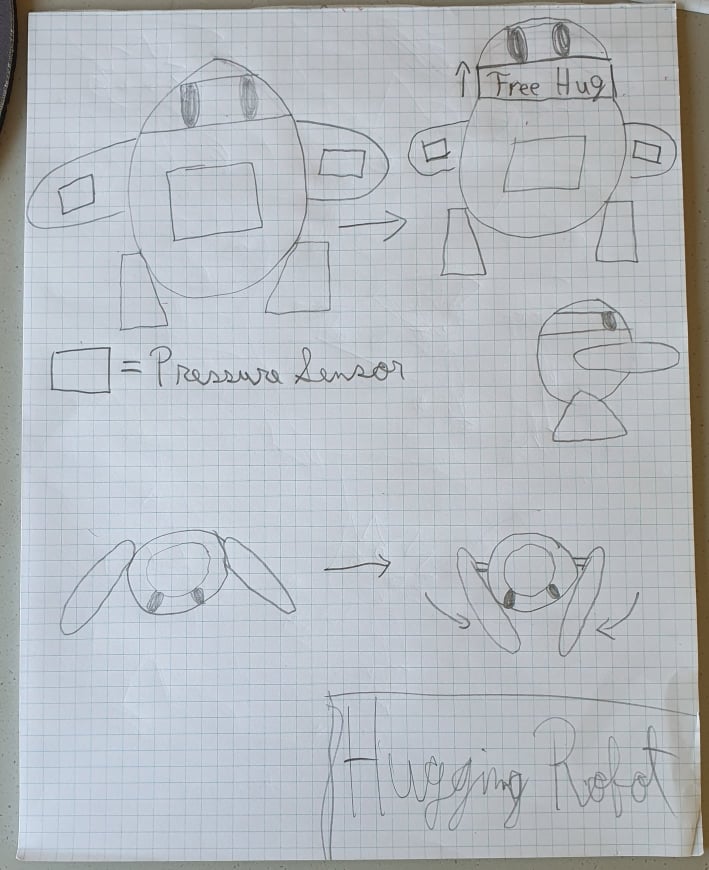 Free Hug
= Pressure Sensor
Hugging Robot